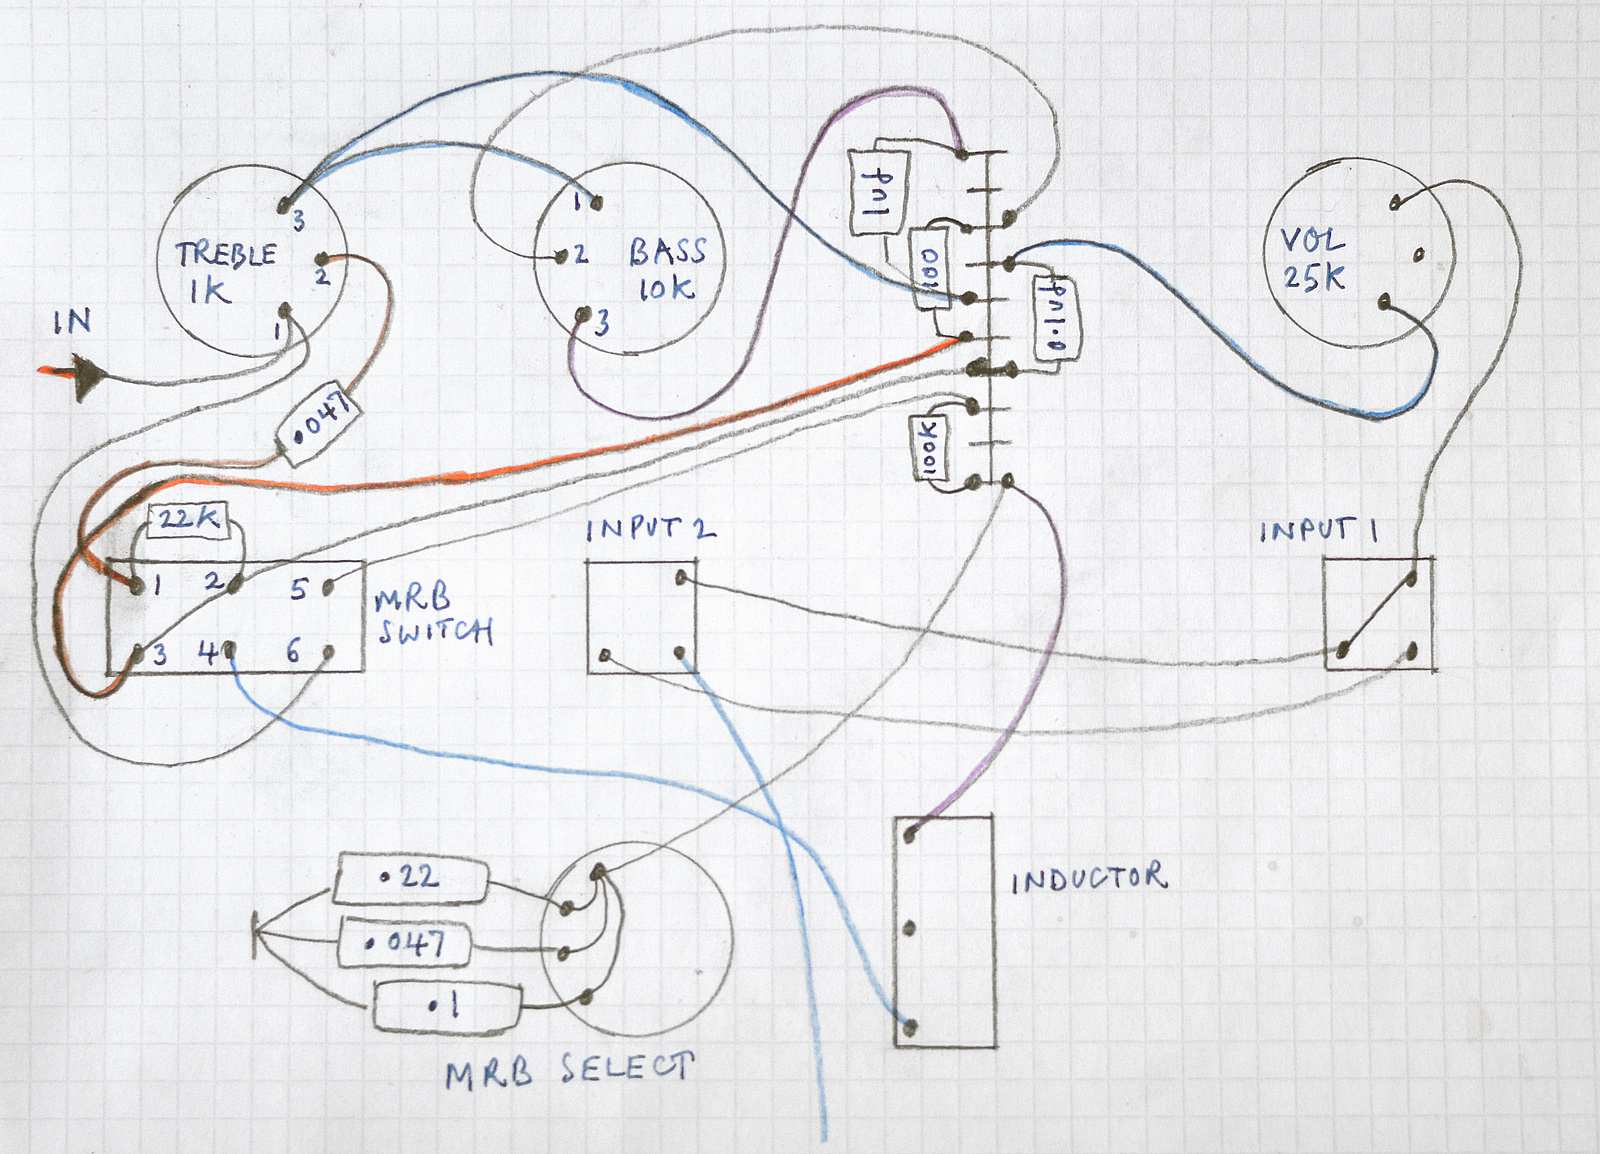 TREBLE
1K
3
2
1
IN
1
2
3
BASS
10K
1uf
100
0.1uf
100K
VOL
25K
.047
22K
1
2
5
3
4
6
MRB
SWITCH
INPUT 2
INPUT 1
.22
.047
.1
MRB SELECT
INDUCTOR